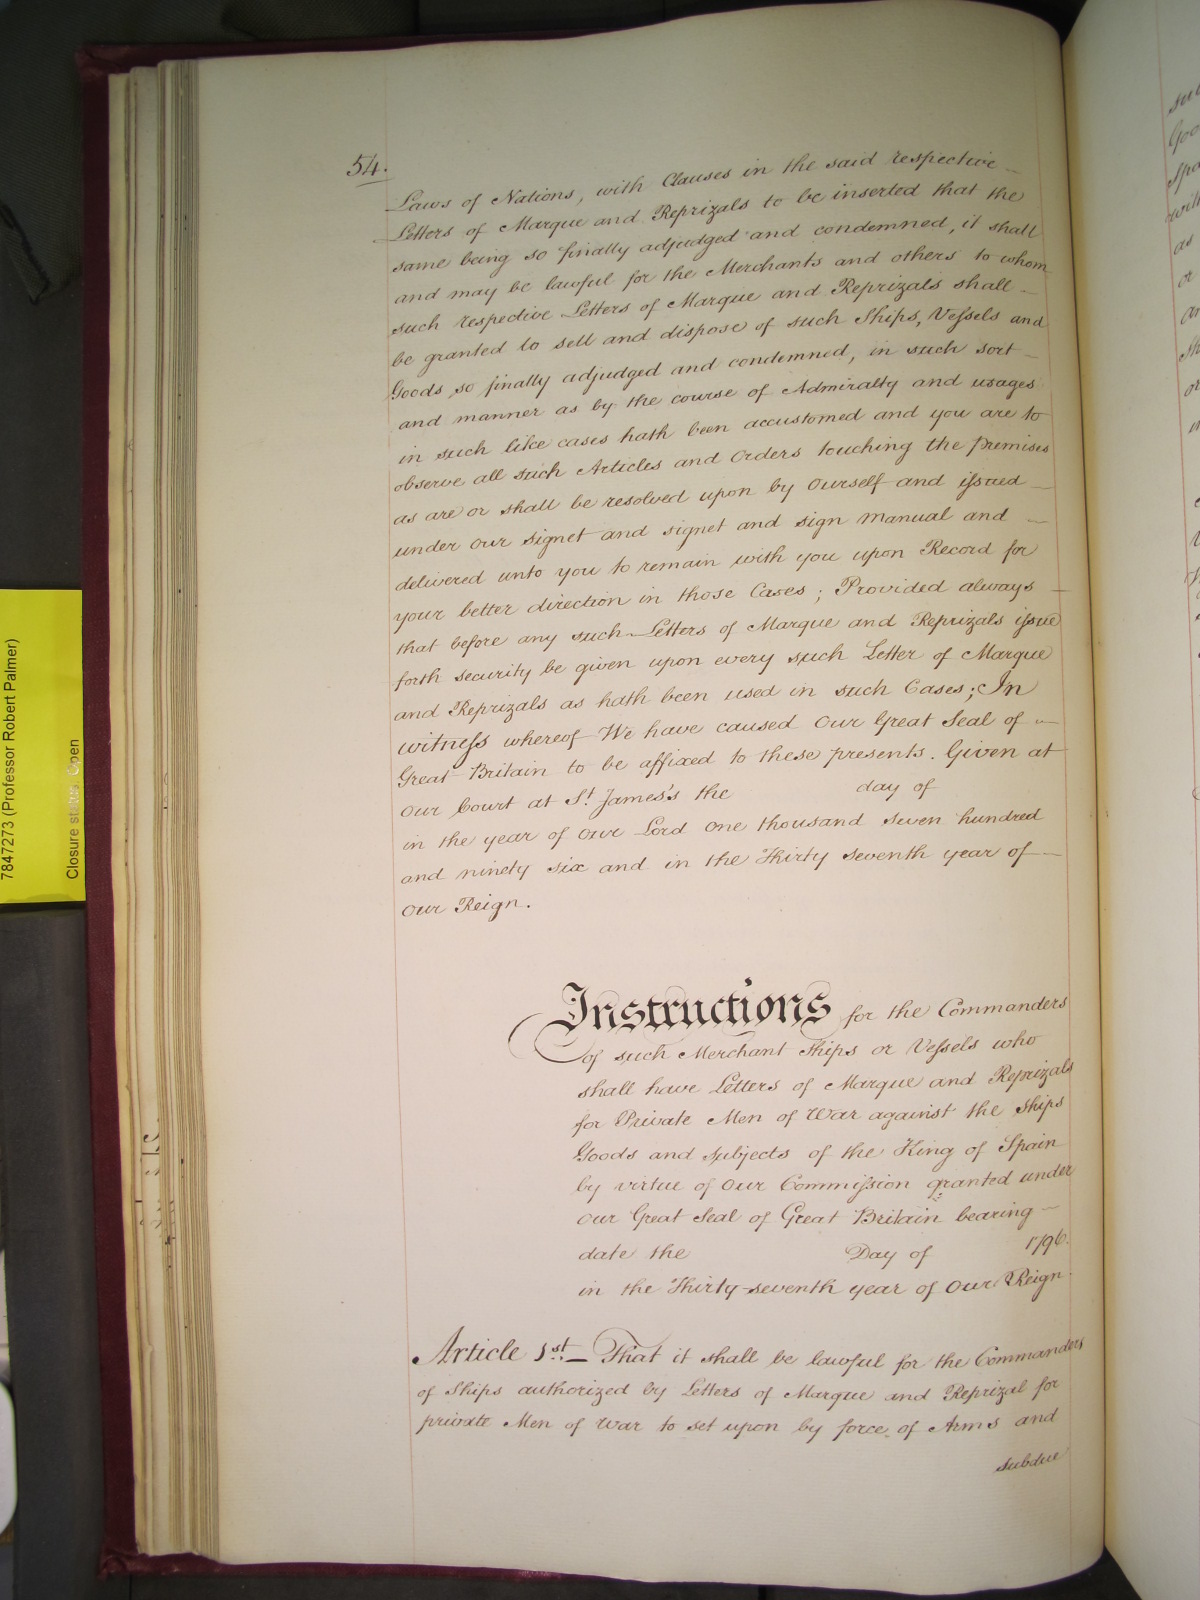 54.
Laws of Nations, with Clauses in the said respective
Letters of Marque and Reprizals to be inserted that the
same being so finally adjudged and condemned, it shall
and may be lawful for the Merchants and others to whom
such respective Letters of Marque and Reprizals shall
be granted to sell and dispose of such Ships, Vessels and
Goods so finally adjudged and condemned, in such sort
and manner as by the course of Admiralty and usages
in such like cases hath been accustomed and you are to
observe all such Articles and Orders touching the premises
as are or shall be resolved upon by Ourself and issued
under our signet and signet and sign manual and
delivered unto you to remain with you upon Record for
your better direction in those Cases; Provided always
that before any such Letters of Marque and Reprizals issue
forth security be given upon every such Letter of Marque
and Reprizals as hath been used in such Cases; In
witness whereof We have caused Our Great Seal of
Great Britain to be affixed to these presents. Given at
Our Court at St. James's the day of
in the year of Our Lord One thousand Seven hundred
and ninety six and in the Thirty seventh year of
Our Reign.
Instructions for the Commanders
of such Merchant Ships or Vessels who
shall have Letters of Marque and Reprizals
for Private Men of War against the Ships
Goods and subjects of the King of Spain
by virtue of Our Commission granted under
Our Great Seal of Great Britain bearing
date the Day of 1796.
in the Thirty-seventh year of Our Reign.
Article 1st.— That it shall be lawful for the Commanders
of Ships authorized by Letters of Marque and Reprizal for
private Men of War to set upon by force of Arms and
subdue
7847273 (Professor Robert Palmer)
Closure status: Open